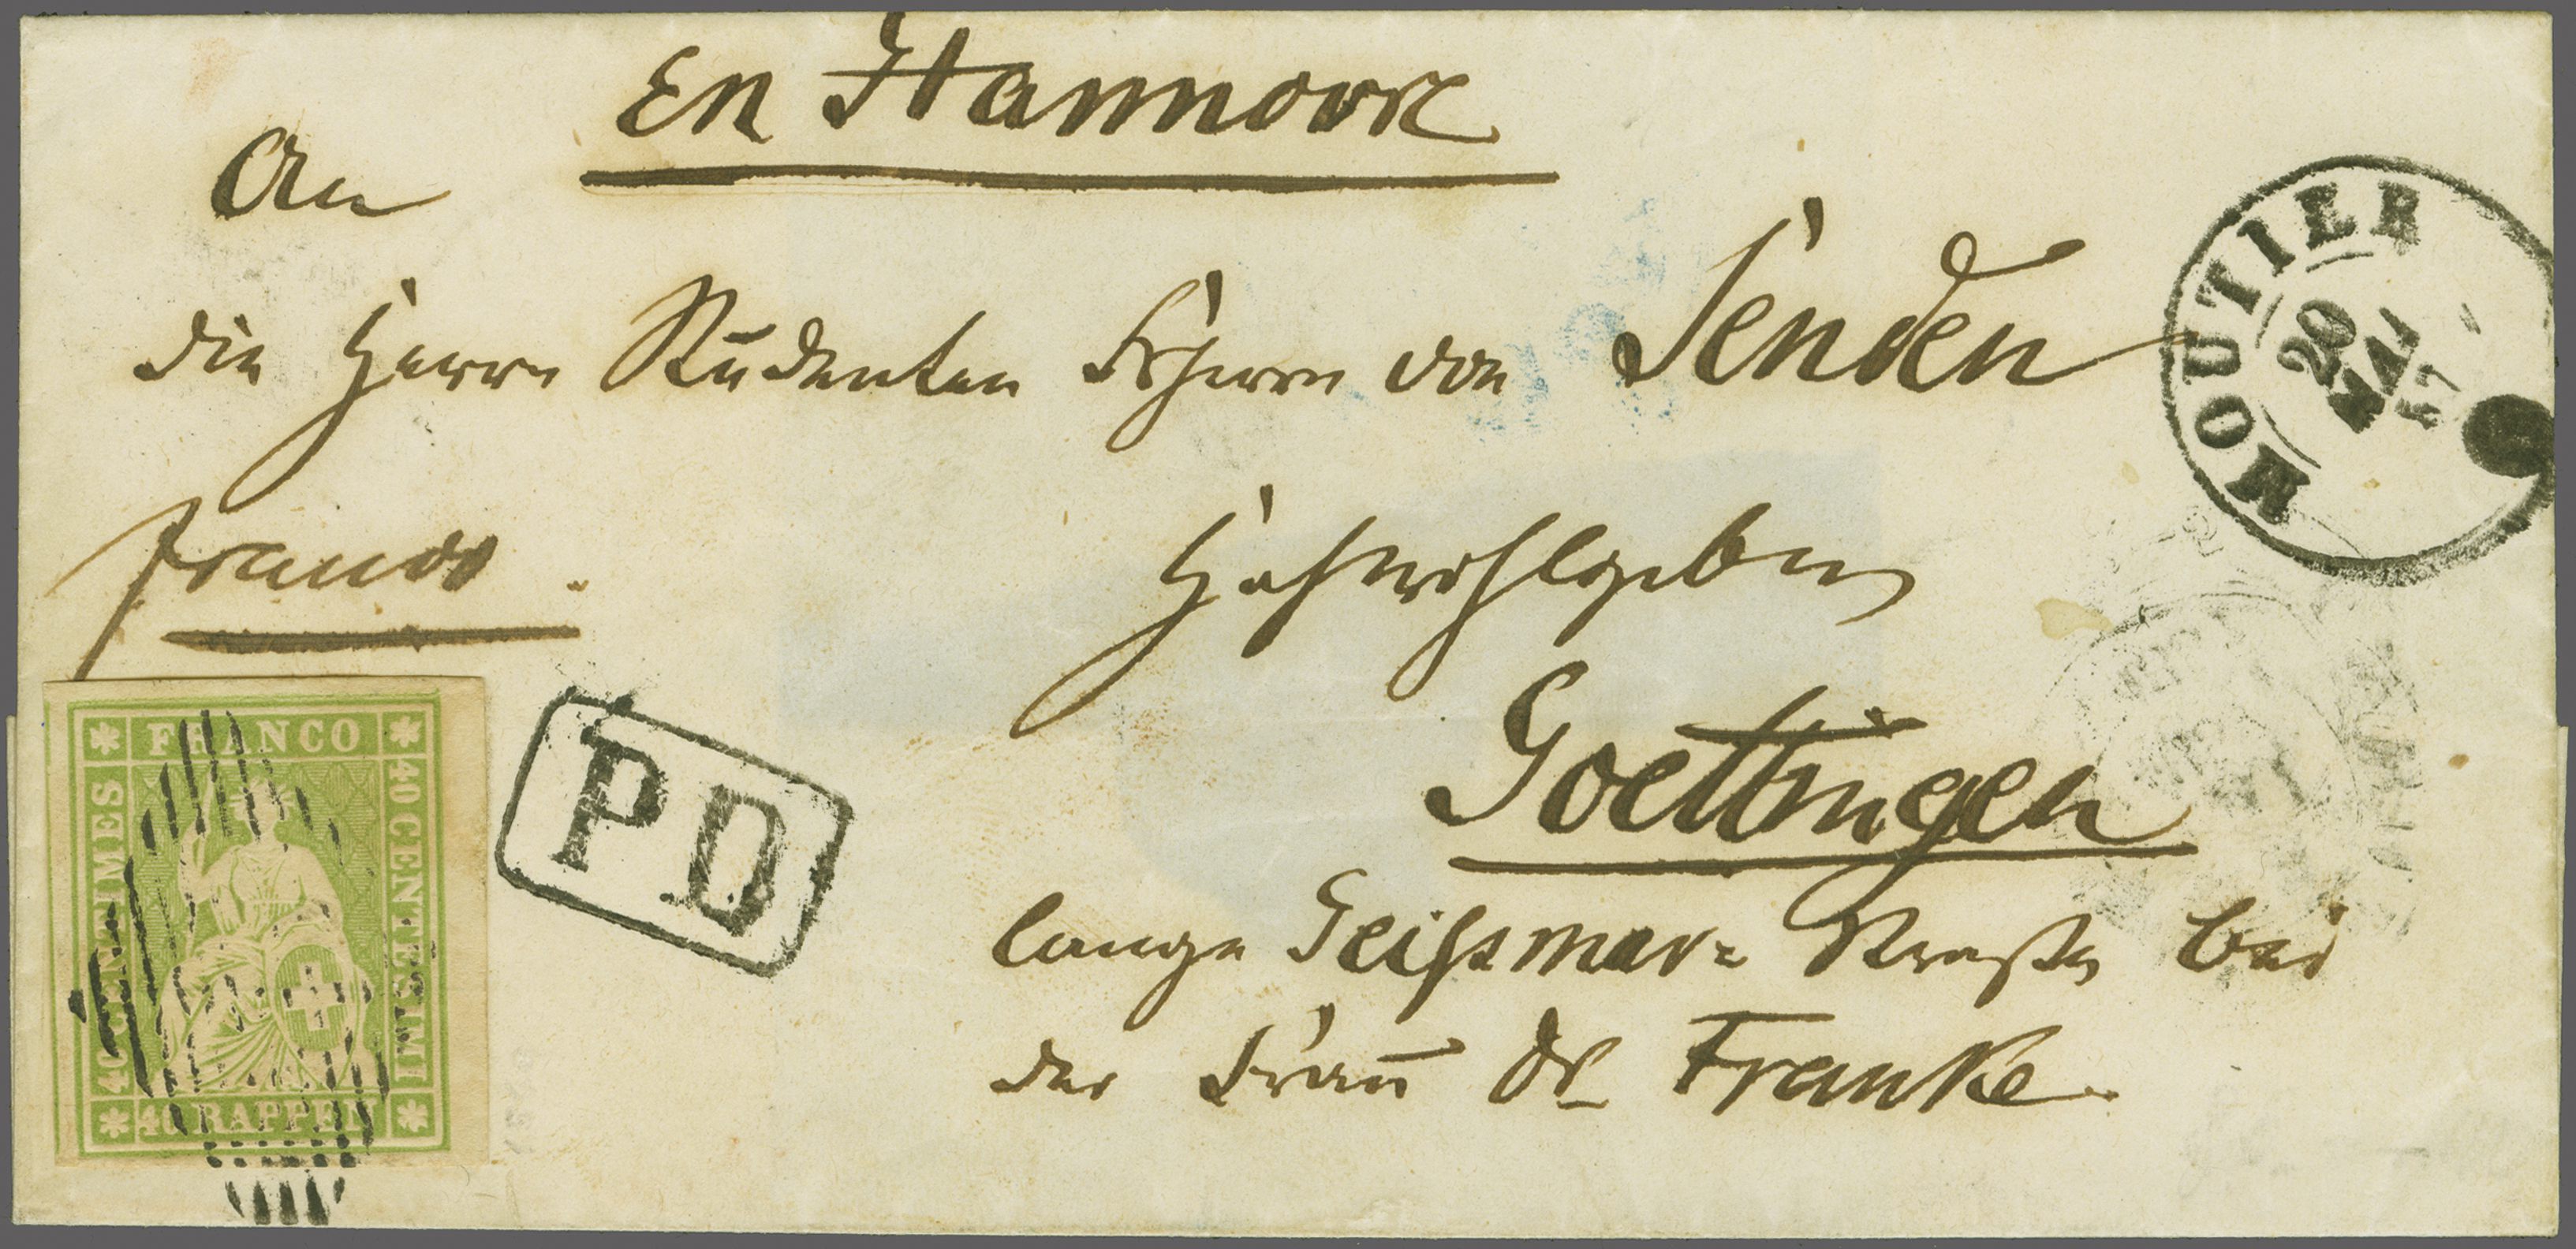 En Hannovre
An
die Herrn Studenten Frhrrn von Senden
franco.
Hochwohlgeboren
Goettingen
lange Geissmar= Strasse bei
der Frau Dr Franke.
MOUTIER
20
MAI
57
PD
FRANCO
40 CENTIMES
40 CENTESIMI
40 RAPPEN